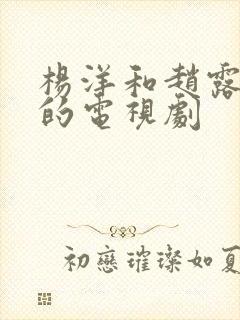 楊洋和趙露
的電視劇
初戀璀璨如夏